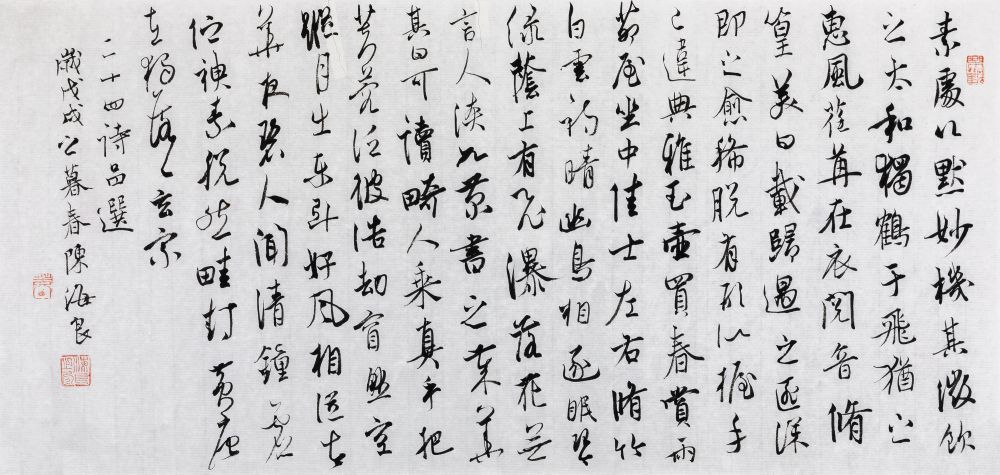 素處以默妙機其微飲
之太和獨鶴于飛猶之
惠風荏苒在衣閱音脩
篁美曰載歸遇之匪深
即之愈稀脫有形似握手
已違典雅玉壺買春賞雨
茆屋坐中佳士左右脩竹
白雲初晴幽鳥相逐眠琴
綠蔭上有飛瀑落花無
言人淡如菊書之歲華
其曰可讀畸人乘真手把
芙蓉泛彼浩劫窅然空
蹤月出東斗好風相從太
華夜碧人聞清鐘虛
佇神素脫然畦封黃唐
在獨落落玄宗
二十四詩品選
歲戊戌之暮春陳海良